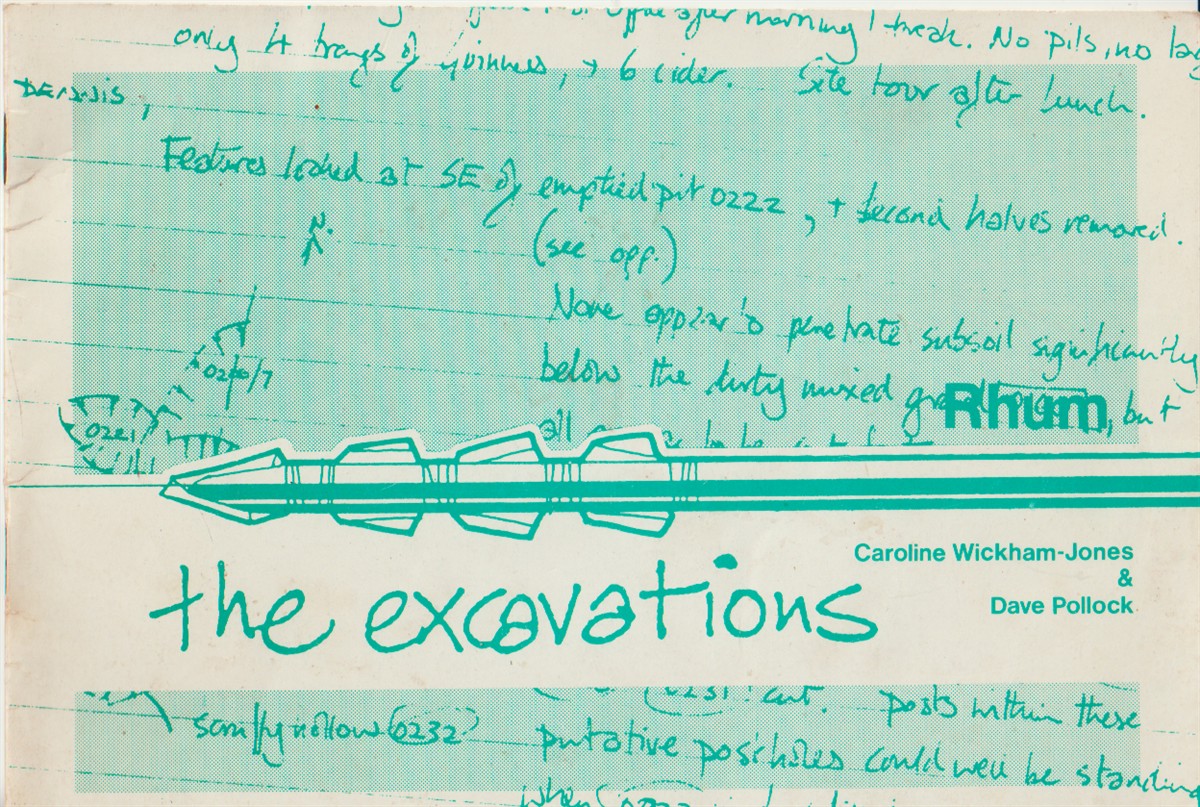 after morning break. No pils, no
only 4 trays of Guinness, + 6 cider. Site tour after lunch.
Features looked at SE of emptied pit 0222, + second halves removed.
(see opp.)
N.
None appear to penetrate subsoil significantly
below the dirty mixed but
0221
all
Rhum
Caroline Wickham-Jones
&
Dave Pollock
the excavations
cut. posts within these
scruffy hollow 0232
putative postholes could well be standing
when